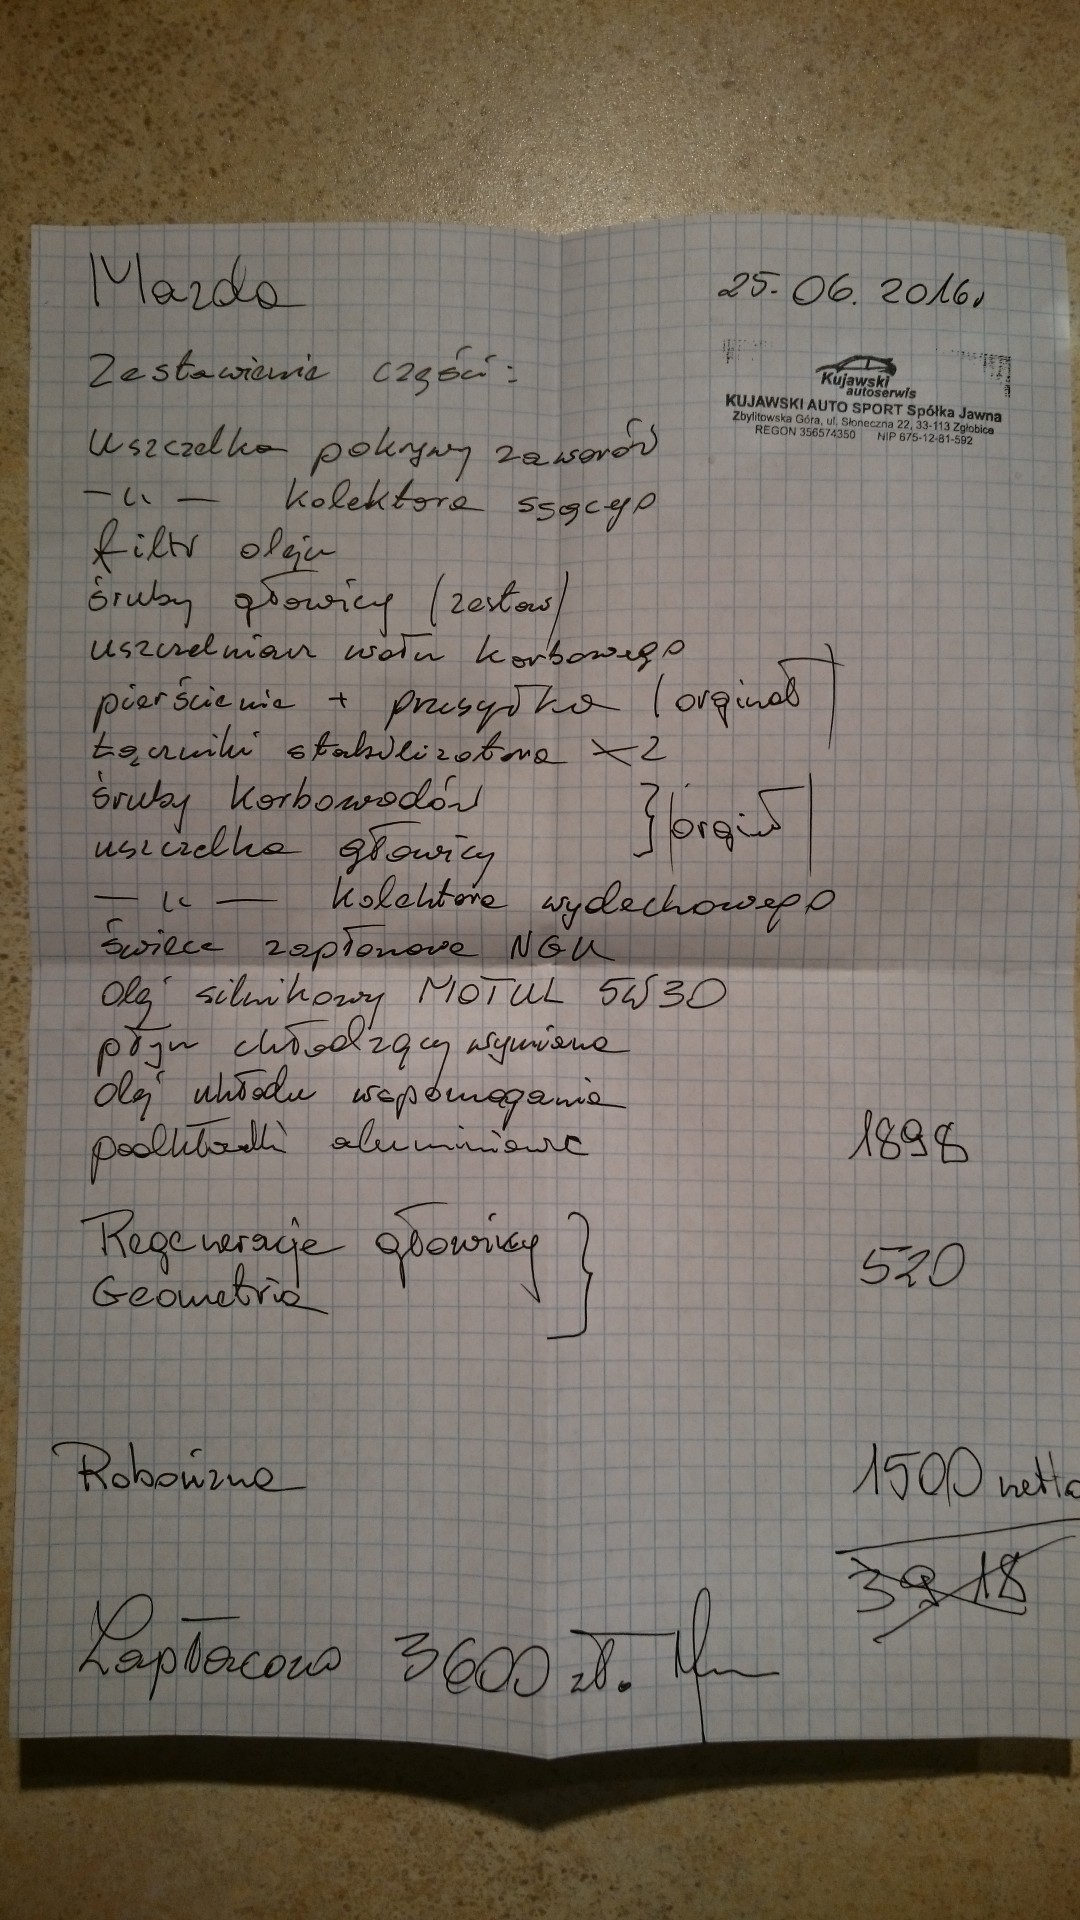 Mazda
25.06.2016r
Kujawski
autoserwis
KUJAWSKI AUTO SPORT Spółka Jawna
Zbylitowska Góra, ul. Słoneczna 22, 33-113 Zgłobice
REGON 356574350 NIP 675-12-81-592
Zestawienie części:
uszczelka pokrywy zaworów
—〃— kolektora ssącego
filtr oleju
śruby głowicy (zestaw)
uszczelniacz wału korbowego
pierścienie + przesyłka (orginał)
łączniki stabilizatora x2
śruby korbowodów
uszczelka głowicy } (orgin)
—〃— kolektora wydechowego
świece zapłonowe NGK
olej silnikowy MOTUL 5W30
płyn chłodzący wymiana
olej układu wspomagania
podkładki aluminiowe 1898
Regeneracje głowicy
Geometria } 520
Robocizna 1500 netto
3918
Zapłacono 3600 zł.